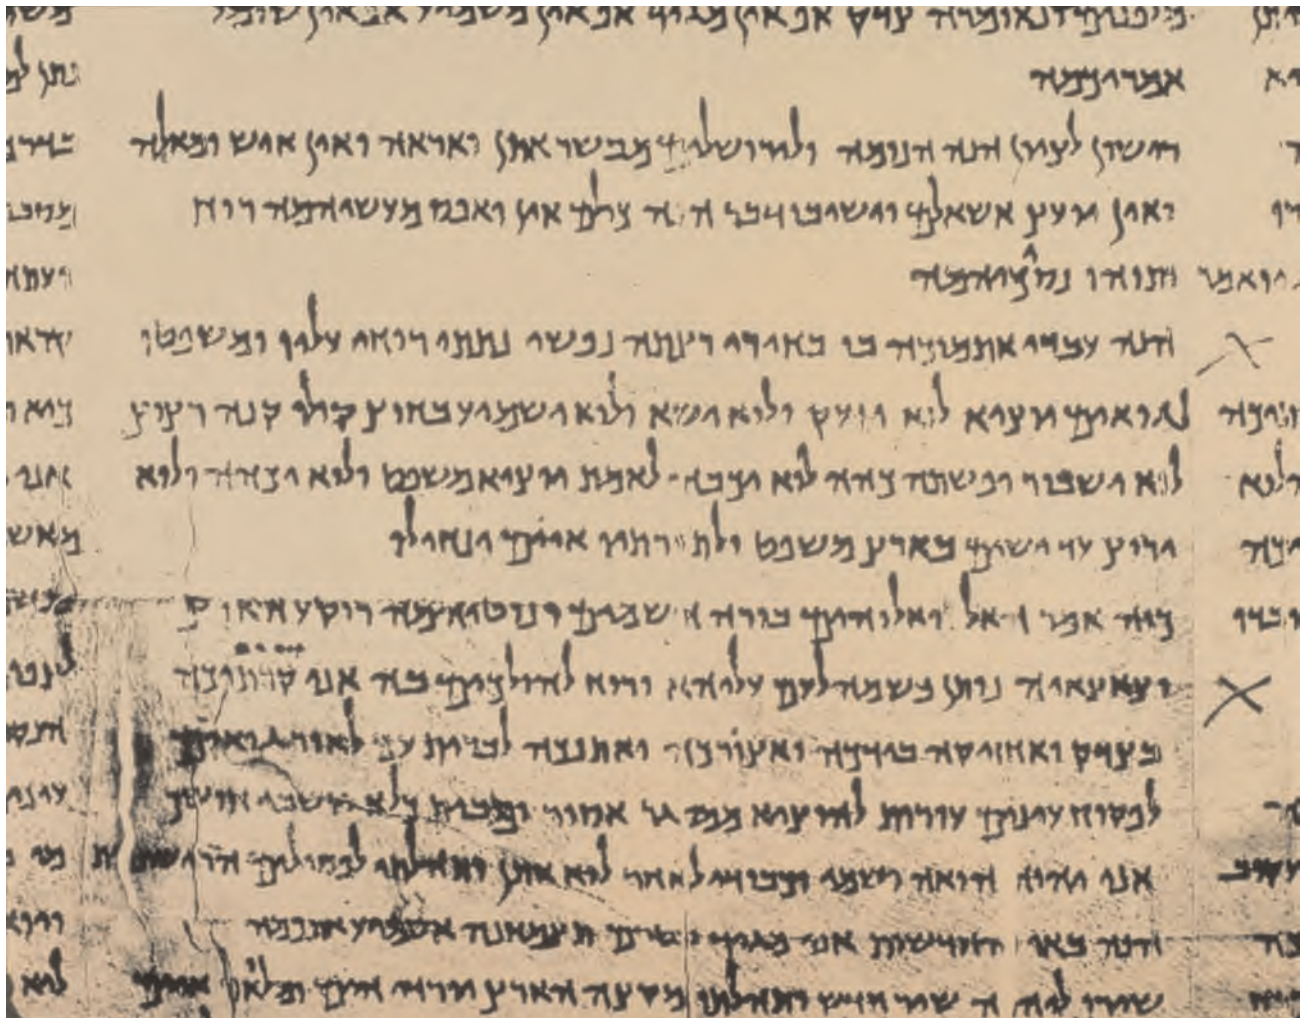 ומלפנים ונאומרה צדק אף אין מגיד אף אין משמיע אף אין שומע
אמריכמה
ראישון לציון הנה הנומה ולירושלים מבשר אתן ואראה ואין איש ומאלה
ואין יועץ אשאלם וישיבו דבר הנה כולם אין ואפס מעשיהמה רוח
ותוהו נסכיהמה
הנה עבדי אתמוכה בו בחירי רצתה נפשי נתתי רוחי עליו ומשפטו
לגואים יוציא לוא יזעק ולוא ישא ולוא ישמיע בחוץ קולו קנה רצוץ
לוא ישבור ופשתה כהה לוא יכבה לאמת יוציא משפט ולוא יכהה ולוא
ירוץ עד ישים בארץ משפט ולתורתיו איים ינחילו
כוה אמר האל ואלוהים בורה השמים ונוטיהמה רוקע הארץ
וצאצאיה נותן נשמה לעם עליהא ורוח להולכים בה אני קרתיכה
בצדק ואחזיקה בידכה ואצורכה ואתנכה לברית עם לאור גואים
לפקוח עינים עורות להוציא ממסגר אסיר ומבית כלא יושבי חושך
אני יהוה הואה ושמי וכבודי לאחר לוא אתן ותהלתי לפסילים הראישונות
הנה באו והחדשות אני מגיד ובטרם תצמחנה אשמיע אתכמה
שירו ליהוה שיר חדש ותהלתו מקצה הארץ יורדי הים ומלואו איים